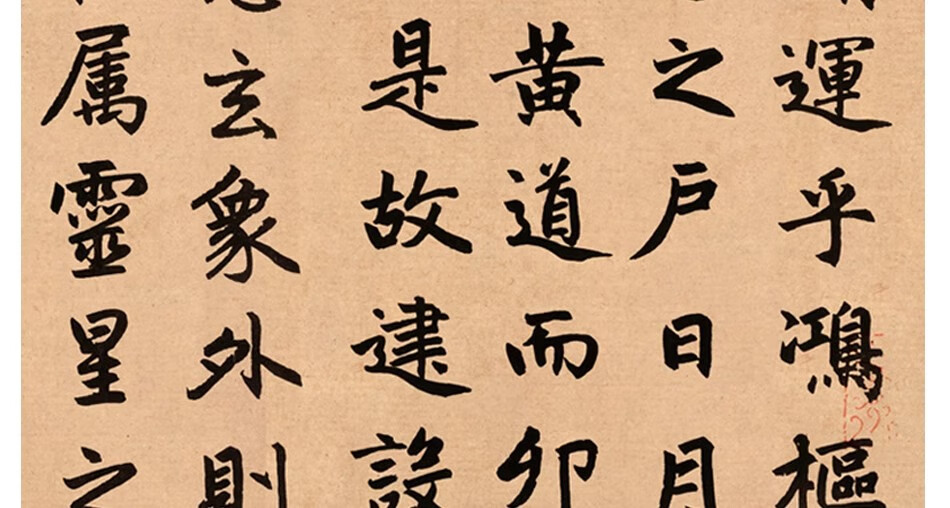 運乎鴻樞
之戶日月
黄道而卯
是故建設
玄象外則
属靈星之